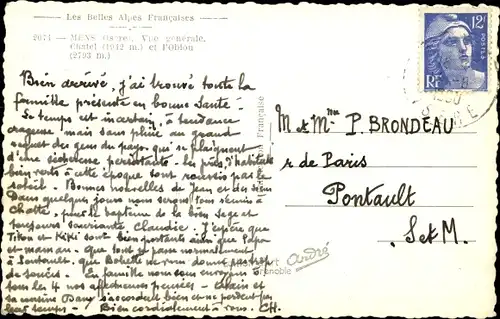 Les Belles Alpes Françaises
2071 - MENS (Isère). Vue générale.
Chatel (1942 m.) et l'Obiou
(2793 m.)
Bien arrivé, j'ai trouvé toute la
famille présente en bonne santé -
Le temps est incertain, à tendance
orageuse mais sans pluie au grand
regret des gens du pays, qui se plaignent
d'une sécheresse persistante - les prés, d'habitude
bien verts à cette époque sont roussis par le
soleil. Bonnes nouvelles de Jean et des siens
Dans quelques jours nous serons tous réunis à
Chatte, pour le baptême de la bien sage et
toujours souriante, Claudie. J'espère que
Titou et Kiki sont bien portants ainsi que Papa
et maman - que tout se passe normalement
à Pontault, que Babette ne vous donne pas trop
de soucis. En famille nous vous envoyons à
tous les 4 nos affectueuses pensées - Alain et
sa cousine Dany s'accordent bien et ne perdent pas
leur temps - Bien cordialement à vous. CH.
Française
André
Grenoble
12F
POSTES
RF
M et Mme P. BRONDEAU
r de Paris
Pontault
S et M.